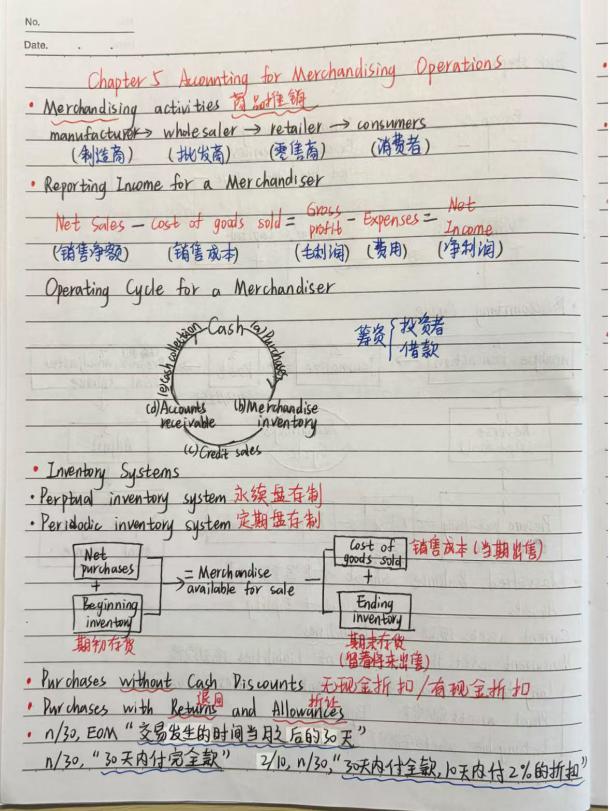 No.
Date. . .
Chapter 5 Accounting for Merchandising Operations
• Merchandising activities 商品推销
manufacturer → wholesaler → retailer → consumers
(制造商) (批发商) (零售商) (消费者)
• Reporting Income for a Merchandiser
Net Sales - Cost of goods sold = Gross profit - Expenses = Net Income
(销售净额) (销售成本) (毛利润) (费用) (净利润)
Operating Cycle for a Merchandiser
Cash (a) Purchases
(e) Cash collection
筹资 { 投资者
借款
(d) Accounts receivable (b) Merchandise inventory
(c) Credit sales
• Inventory Systems
• Perptual inventory system 永续盘存制
• Periodic inventory system 定期盘存制
Net purchases + Beginning inventory = Merchandise available for sale
期初存货
Cost of goods sold 销售成本(当期出售)
+
Ending inventory
期末存货
(留着将来出售)
• Purchases without Cash Discounts 无现金折扣/有现金折扣
退回 折让
• Purchases with Returns and Allowances
• n/30, EOM "交易发生的时间当月之后的30天"
n/30, "30天内付完全款" 2/10, n/30, "30天内付全款,10天内付2%的折扣"